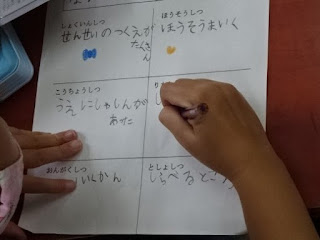 しょくいんしつ
せんせいのつくえが
たくさん
ほうそうしつ
ほうそうまいく
こうちょうしつ
うえにしゃしんが
あった
おんがくしつ
としょしつ
しらべるところ